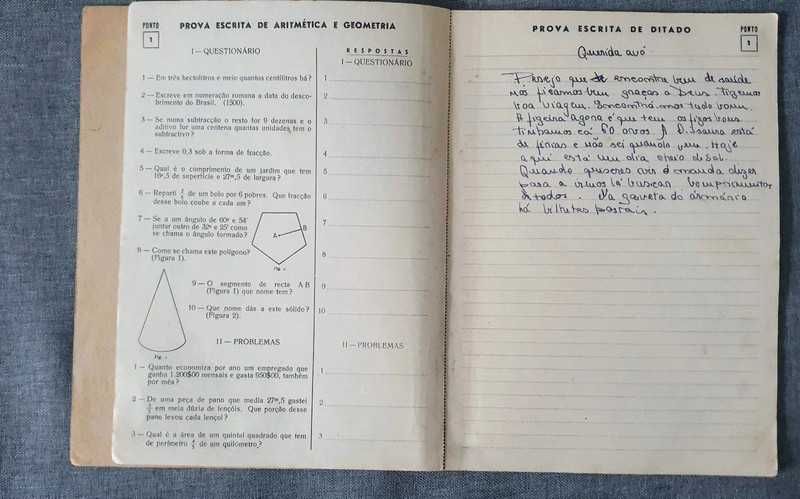 PONTO
1
PROVA ESCRITA DE ARITMÉTICA E GEOMETRIA
I — QUESTIONÁRIO
1 — Em três hectolitros e meio quantos centilitros há?
2 — Escreve em numeração romana a data do desco-
brimento do Brasil. (1500).
3 — Se numa subtracção o resto for 9 dezenas e o
aditivo for uma centena quantas unidades tem o
subtractivo?
4 — Escreve 0,3 sob a forma de fracção.
5 — Qual é o comprimento de um jardim que tem
de superfície e 27m,5 de largura?
6 — Reparti de um bolo por 6 pobres. Que fracção
desse bolo coube a cada um?
7 — Se a um ângulo de 60º e 54'
juntar outro de 32º e 25' como
se chama o ângulo formado?
8 — Como se chama este polígono?
(Figura 1).
A
B
Fig. 1
9 — O segmento de recta A B
(Figura 1) que nome tem?
10 — Que nome dás a este sólido?
(Figura 2).
Fig.
II — PROBLEMAS
1 — Quanto economiza por ano um empregado que
ganha 1.200$00 mensais e gasta 950$00, também
por mês?
2 — De uma peça de pano que media 27m,5 gastei
em meia dúzia de lençóis. Que porção desse
pano levou cada lençol?
3 — Qual é a área de um quintal quadrado que tem
de perímetro de um quilómetro?
RESPOSTAS
I — QUESTIONÁRIO
1
2
3
4
5
6
7
8
9
10
II — PROBLEMAS
1
2
3
PROVA ESCRITA DE DITADO
PONTO
1
Querida avó
Desejo que se encontre bem de saúde
nós ficamos bem graças a Deus. Fizemos
boa viagem. Encontrámos tudo bom.
A figueira agora é que tem os figos bons
tinhamos cá 60 ovos. A D. Isaura está
de férias e não sei quando vem. Hoje
aqui está um dia cheio de Sol.
Quando quiseres vir é manda dizer
para a irmos lá buscar. Comprimentos
de todos. Na gaveta do armário
há bilhetes postais.